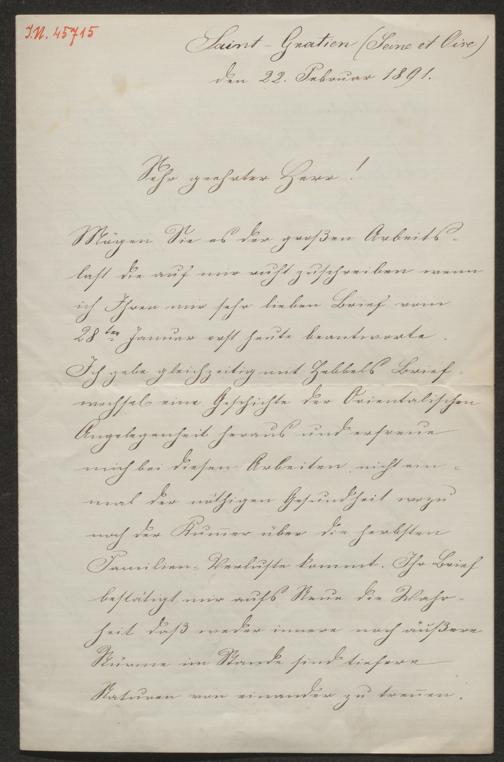 J.N. 45715
Saint-Gratien (Seine et Oise)
den 22. Februar 1891.
Sehr geehrter Herr!
Mögen Sie es der großen Arbeits-
last die auf mir ruht zuschreiben wenn
ich Ihren mir sehr lieben Brief vom
28ten Januar erst heute beantworte.
Ich gebe gleichzeitig mit Hebbels Brief
wechsel eine Geschichte der Orientalischen
Angelegenheit heraus und erfreue
mich bei diesen Arbeiten nicht ein-
mal der nöthigen Gesundheit wozu
noch der Kummer über die herbsten
Familien-Verluste kommt. Ihr Brief
bestätigt mir aufs Neue die Wahr-
heit daß weder innere noch äußere
Stürme im Stande sind tiefere
Naturen von einander zu trennen.